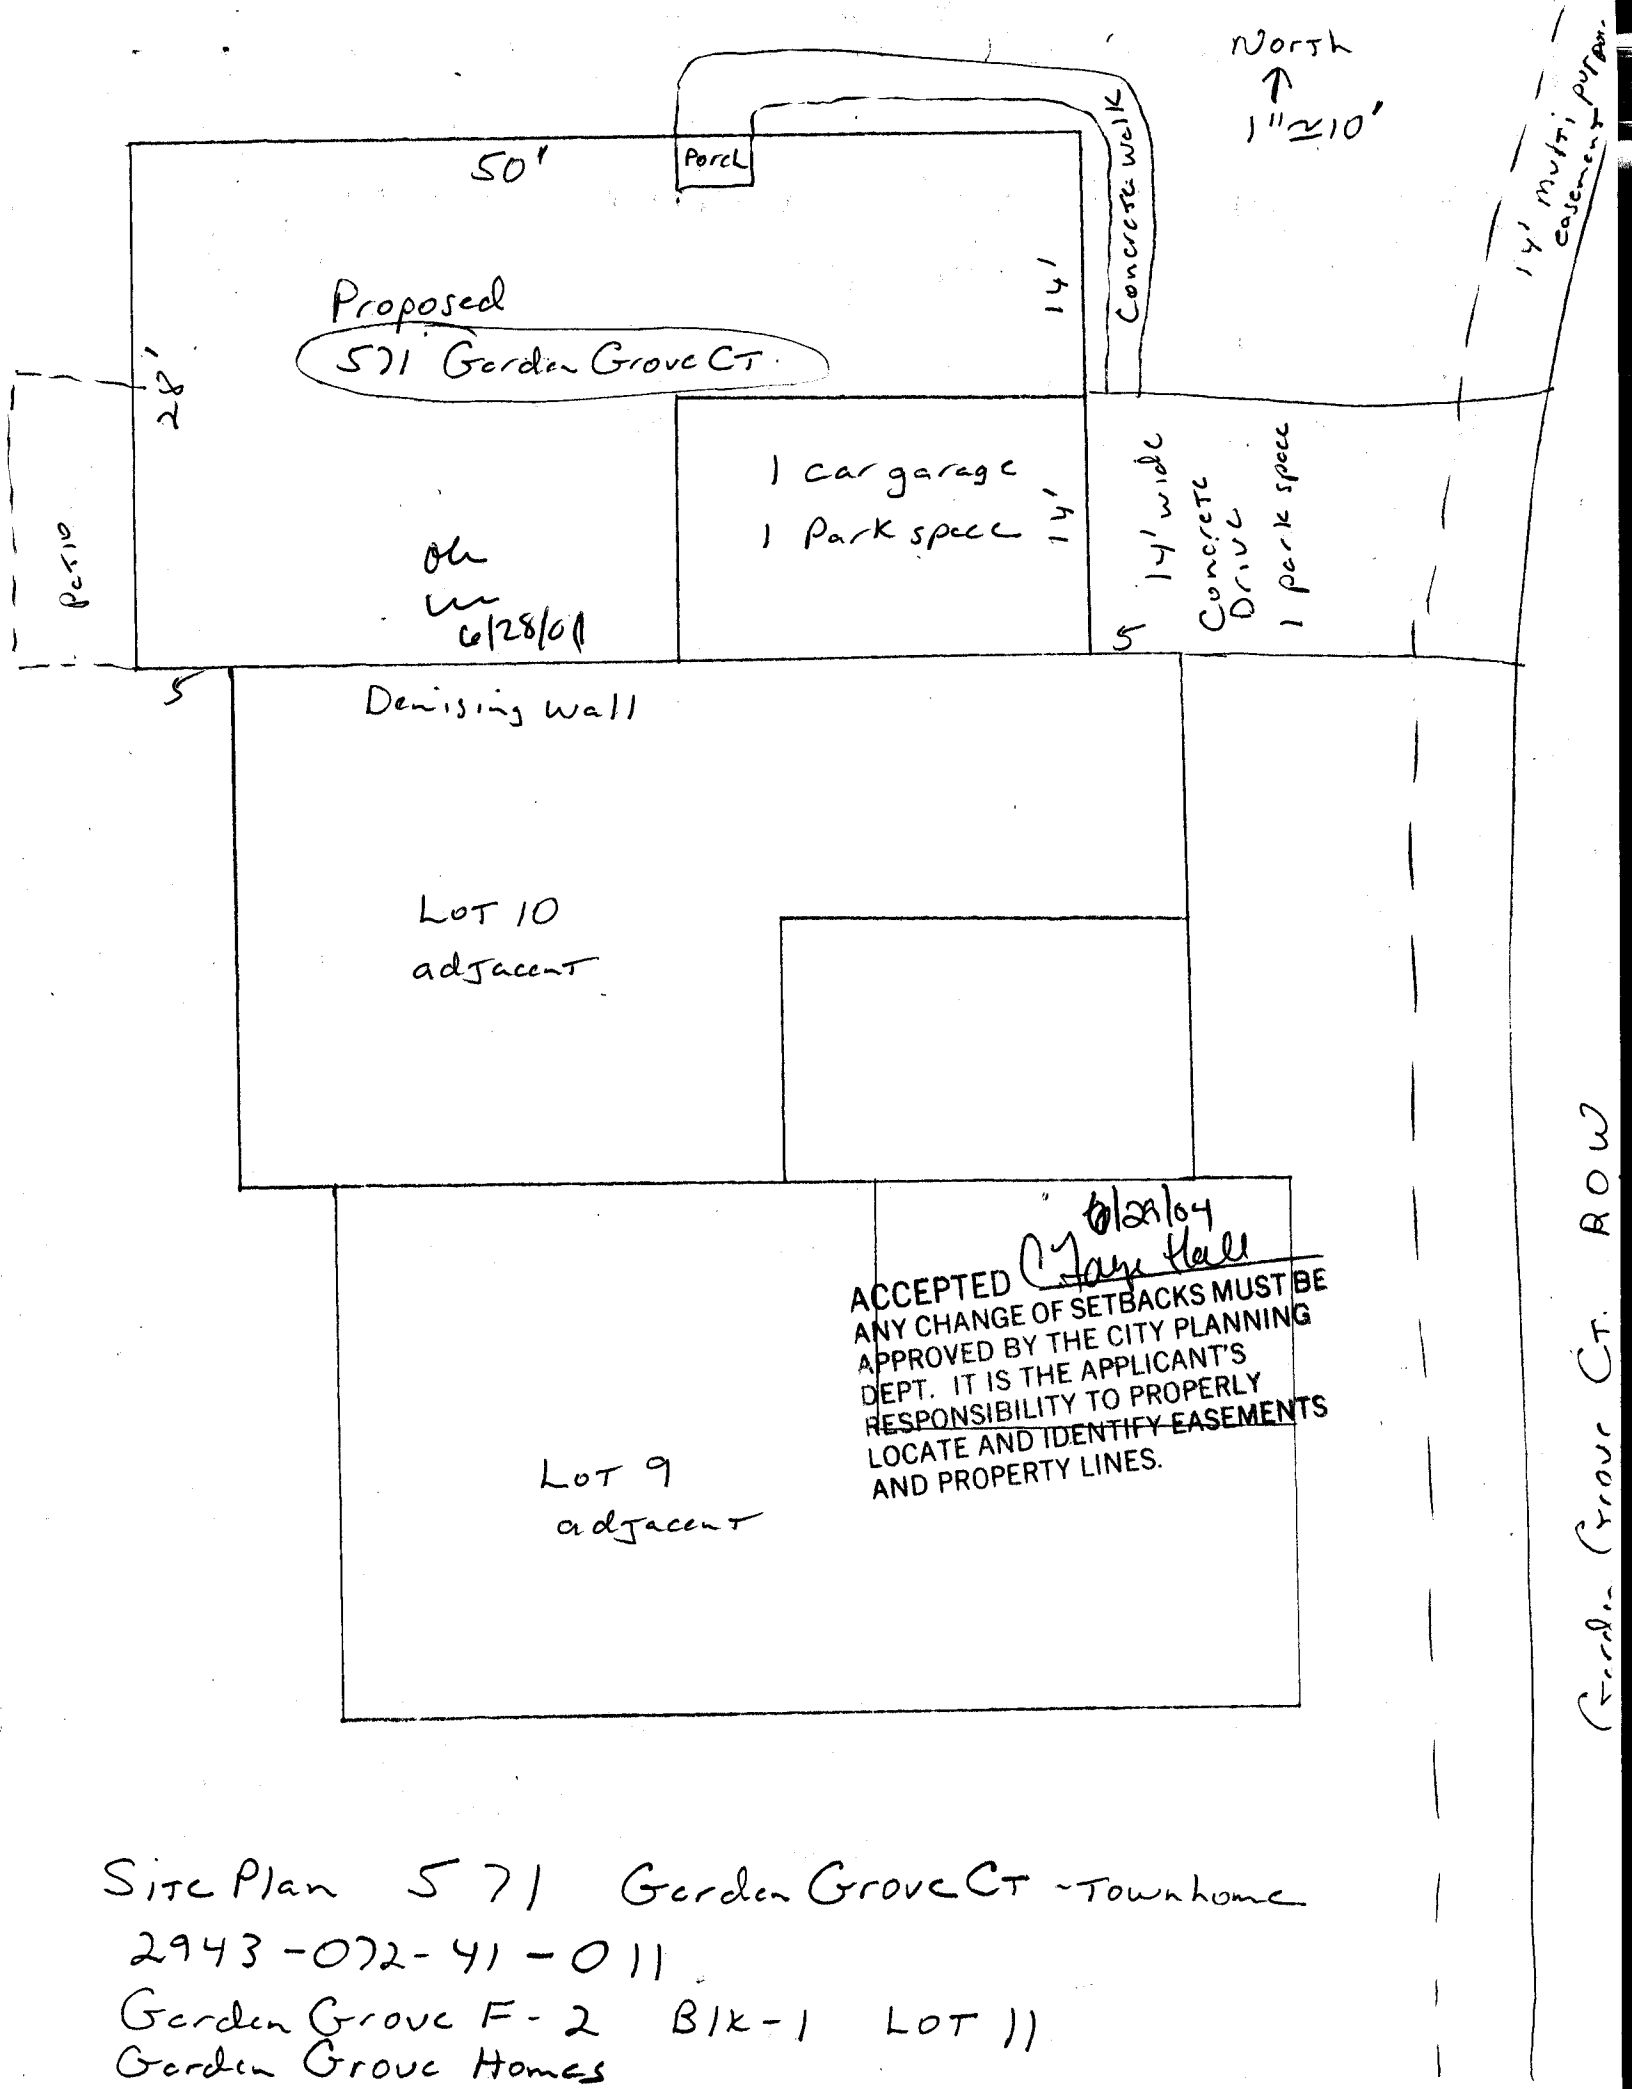 North
1" ≃ 10'
14' Multi purpose
easement
50'
Porch
Concrete walk
14'
Proposed
571 Garden Grove CT.
28'
Patio
1 car garage
1 Park space
14'
14' wide
Concrete
Drive
1 park space
ok
6/28/01
5
5
Demising wall
LOT 10
adjacent
6/29/04
C. Faye Hall
ACCEPTED
ANY CHANGE OF SETBACKS MUST BE
APPROVED BY THE CITY PLANNING
DEPT. IT IS THE APPLICANT'S
RESPONSIBILITY TO PROPERLY
LOCATE AND IDENTIFY EASEMENTS
AND PROPERTY LINES.
LOT 9
adjacent
Garden Grove CT. ROW
Site Plan 571 Garden Grove CT - Townhome
2943-072-41-011
Garden Grove F-2 Blk-1 LOT 11
Garden Grove Homes